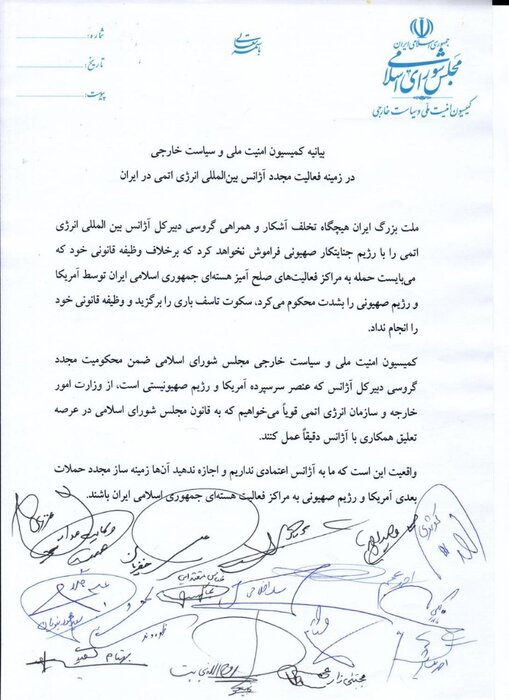 جمهوری اسلامی ایران
مجلس شورای اسلامی
کمیسیون امنیت ملی و سیاست خارجی
باسمه تعالی
شماره:
تاریخ:
پیوست:
بیانیه کمیسیون امنیت ملی و سیاست خارجی
در زمینه فعالیت مجدد آژانس بین‌المللی انرژی اتمی در ایران
ملت بزرگ ایران هیچگاه تخلف آشکار و همراهی گروسی دبیرکل آژانس بین المللی انرژی
اتمی را با رژیم جنایتکار صهیونی فراموش نخواهد کرد که برخلاف وظیفه قانونی خود که
می‌بایست حمله به مراکز فعالیت‌های صلح آمیز هسته‌ای جمهوری اسلامی ایران توسط آمریکا
و رژیم صهیونی را بشدت محکوم می‌کرد، سکوت تاسف باری را برگزید و وظیفه قانونی خود
را انجام نداد.
کمیسیون امنیت ملی و سیاست خارجی مجلس شورای اسلامی ضمن محکومیت مجدد
گروسی دبیرکل آژانس که عنصر سرسپرده آمریکا و رژیم صهیونیستی است، از وزارت امور
خارجه و سازمان انرژی اتمی قویاً می‌خواهیم که به قانون مجلس شورای اسلامی در عرصه
تعلیق همکاری با آژانس دقیقاً عمل کنند.
واقعیت این است که ما به آژانس اعتمادی نداریم و اجازه ندهید آن‌ها زمینه ساز مجدد حملات
بعدی آمریکا و رژیم صهیونی به مراکز فعالیت هسته‌ای جمهوری اسلامی ایران باشند.
عزیزی
کوثری